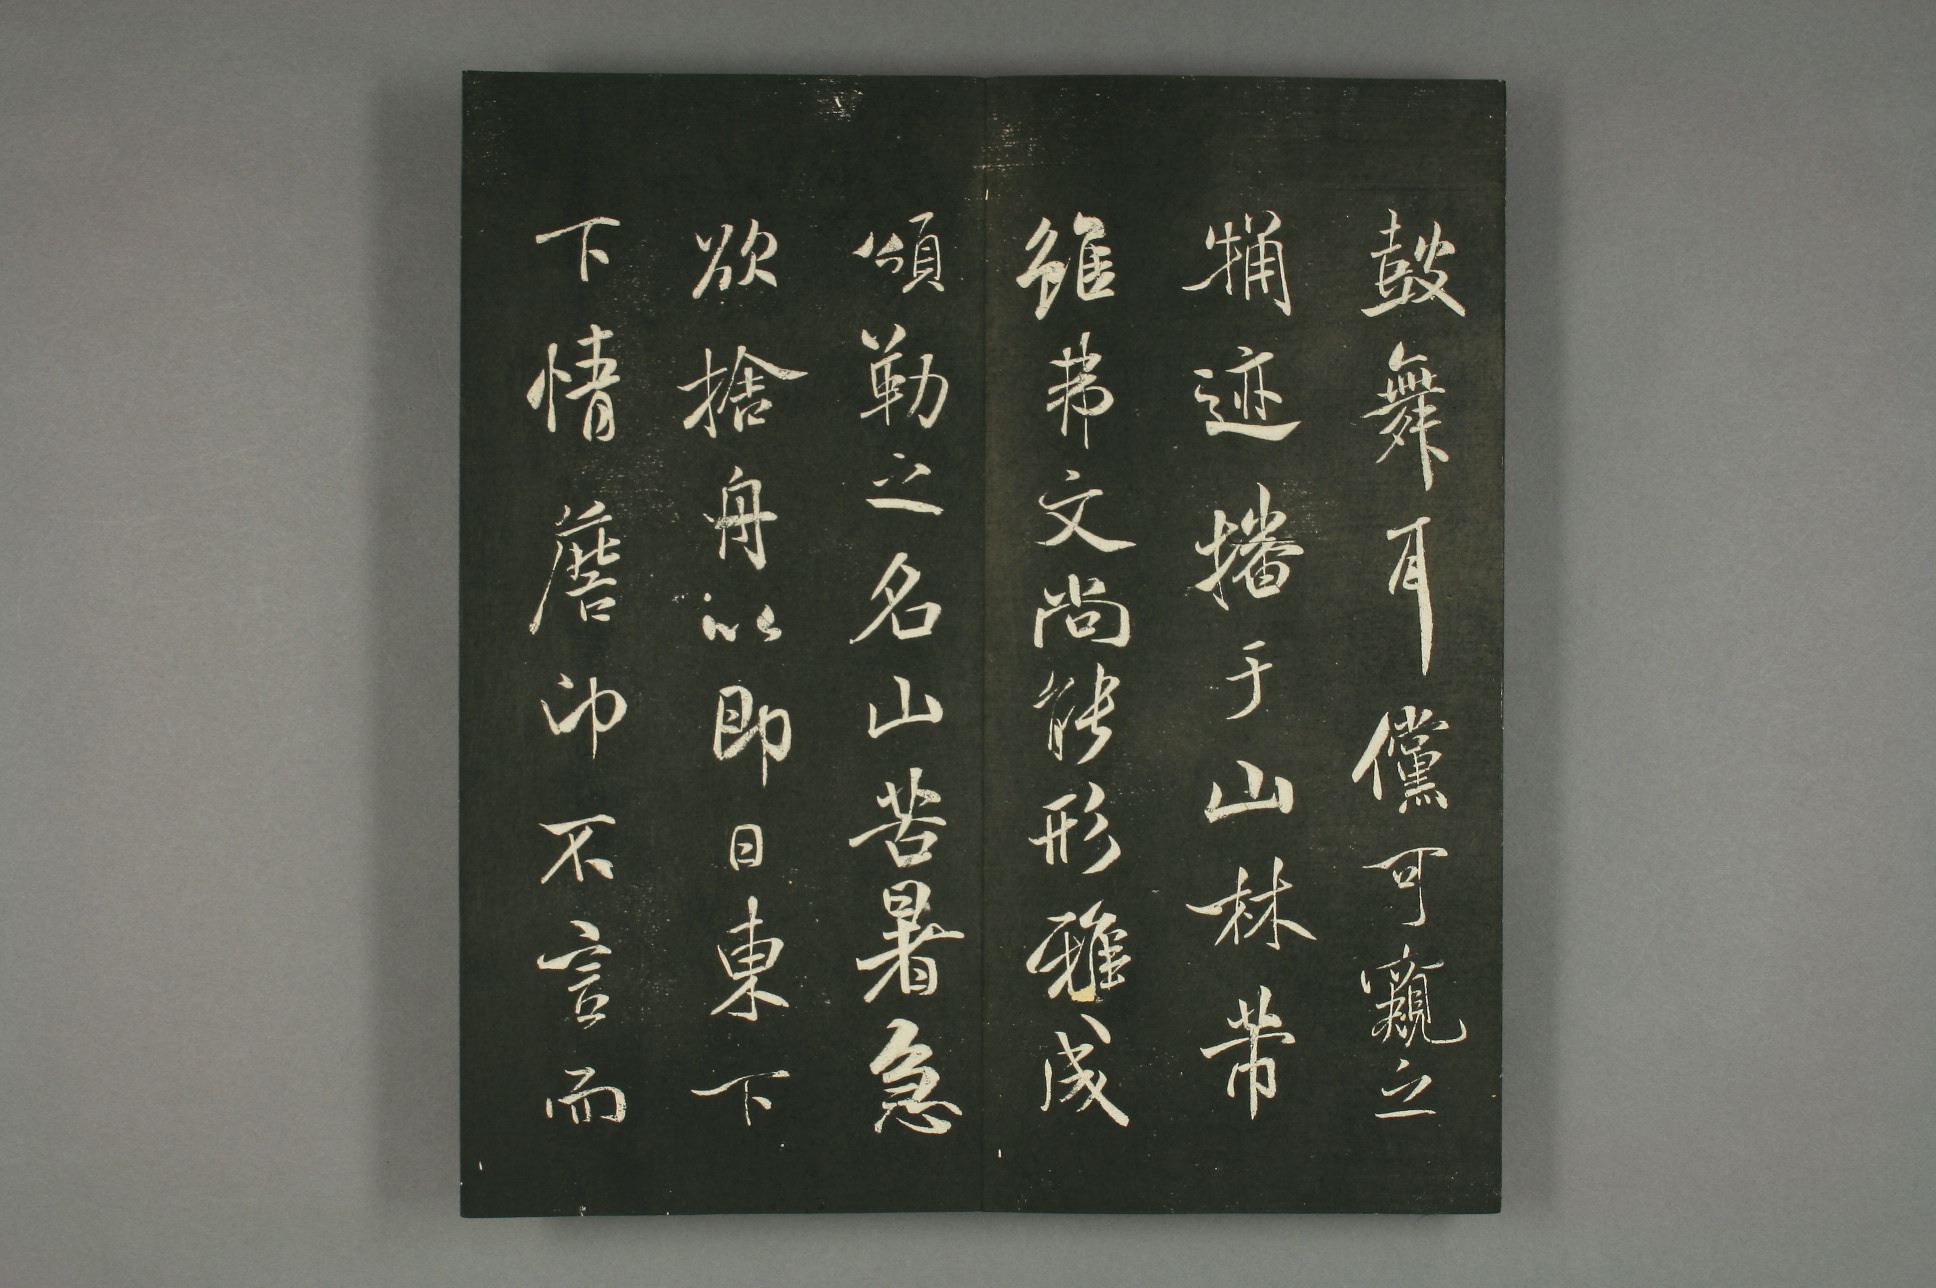 鼓舞耳儻可窺之
牅迹播于山林芾
雖弗文尚能形雅成
頌勒之名山苦暑急
欲捨舟以即日東下
下情蘑卬不言而